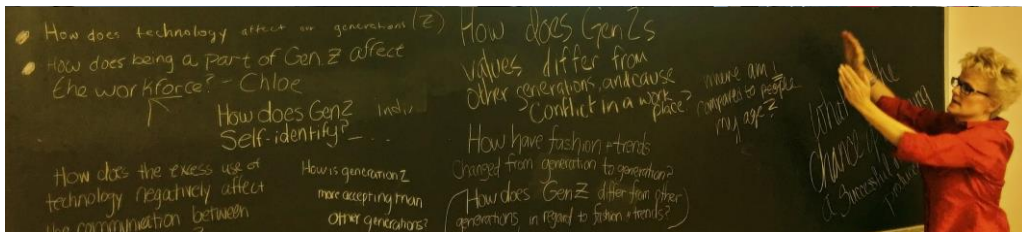 How does technology affect our generations (Z)
How does being a part of Gen Z affect
the workforce? - Chloe
How does GenZ indiv..
Self-identify?
How does the excess use of
technology negatively affect
the communication between
How is generation Z
more accepting than
other generations?
How does GenZs
values differ from
other generations, and cause
conflict in a work
place?
am I
compared to people
my age?
How have fashion + trends
changed from generation to generation?
(How does GenZ differ from other
generations in regard to fashion + trends?)
the
What
chance
a successful